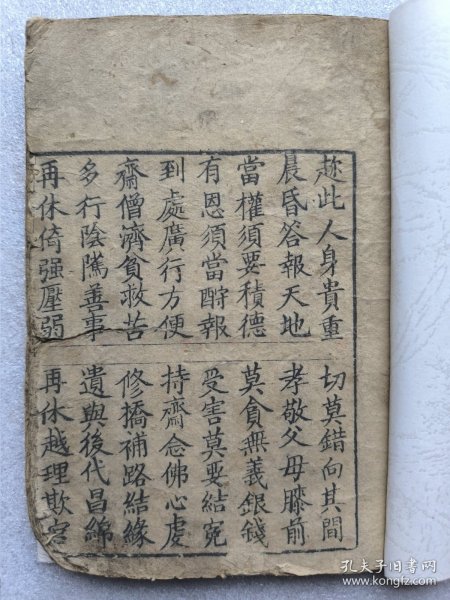 趂此人身貴重
切莫錯向其間
晨昏答報天地
孝敬父母膝前
當權須要積德
莫貪無義銀錢
有恩須當酧報
受害莫要結寃
到處廣行方便
持齋念佛心虔
齋僧濟貧救苦
修橋補路結緣
多行陰隲善事
遺與後代昌綿
再休倚强壓弱
再休越理欺官
孔夫子旧书网
www.kongfz.com